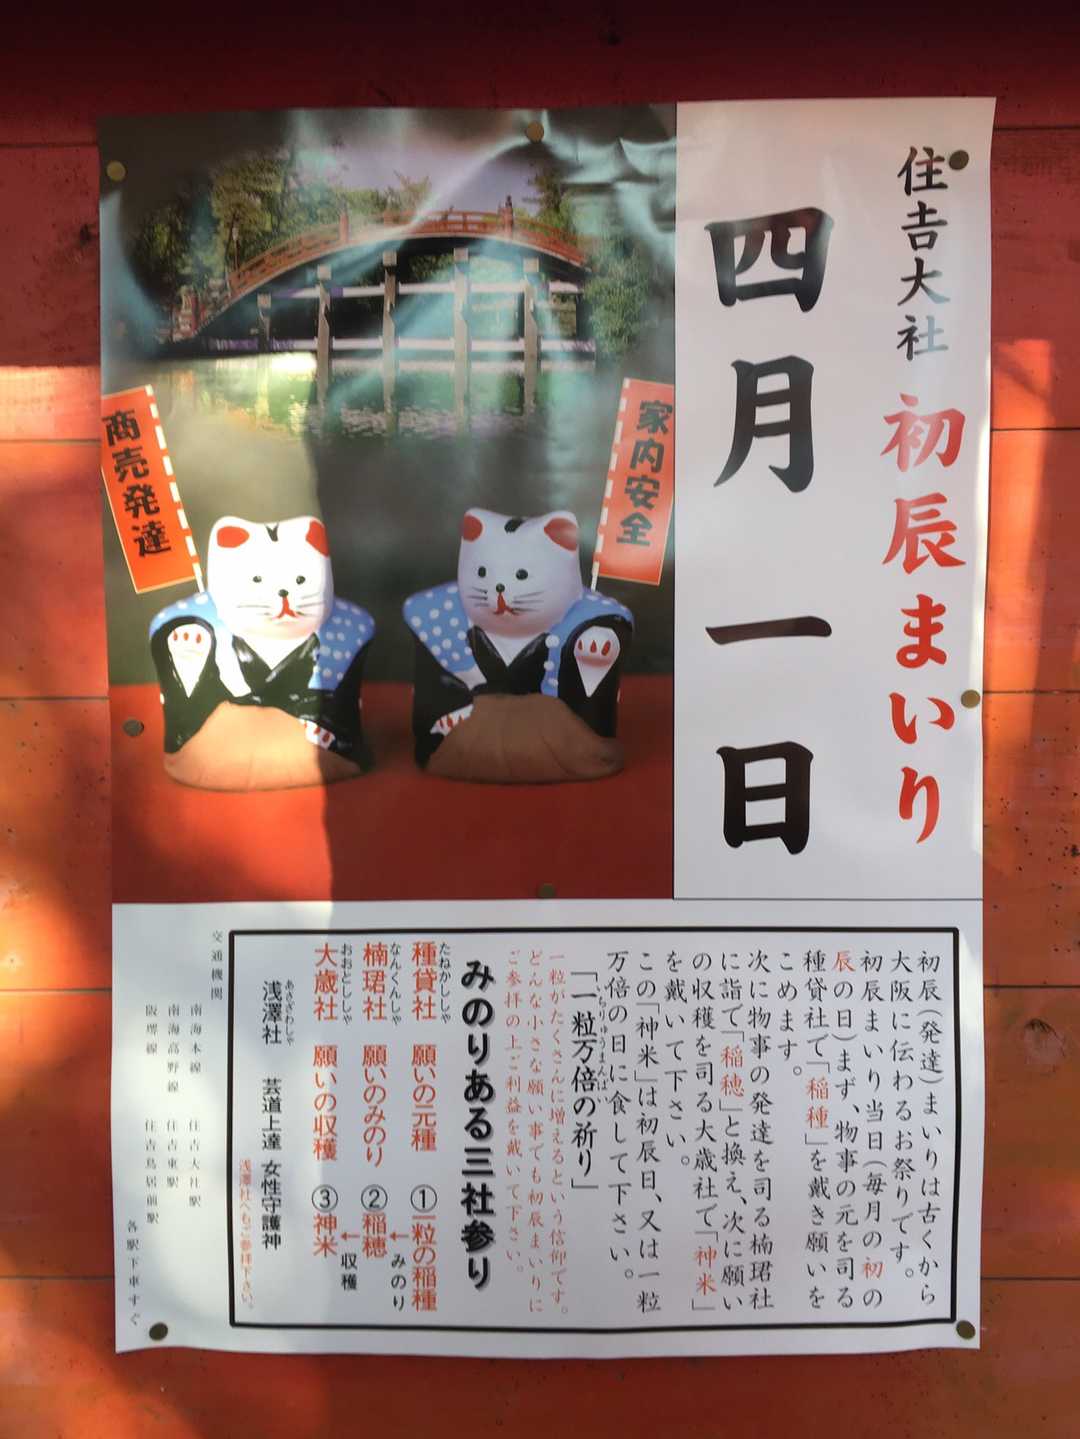 住吉大社 初辰まいり
四月一日
家内安全
商売発達
初辰(発達)まいりは古くから
大阪に伝わるお祭りです。
初辰まいり当日(毎月の初の
辰の日)まず、物事の元を司る
種貸社で「稲種」を戴き願いを
こめます。
次に物事の発達を司る楠珺社
に詣で「稲穂」と換え、次に願い
の収穫を司る大歳社で「神米」
を戴いて下さい。
この「神米」は初辰日、又は一粒
万倍の日に食して下さい。
「一粒万倍の祈り」
いちりゅうまんばい
一粒がたくさんに増えるという信仰です。
どんな小さな願い事でも初辰まいりに
ご参拝の上ご利益を戴いて下さい。
みのりある三社参り
たねかししゃ
種貸社 願いの元種 ①一粒の稲種
←みのり
なんくんしゃ
楠珺社 願いのみのり ②稲穂
←収穫
おおとししゃ
大歳社 願いの収穫 ③神米
あさざわしゃ
浅澤社 芸道上達 女性守護神
浅澤社へもご参拝下さい。
交通機関
南海本線 住吉大社駅
南海高野線 住吉東駅
阪堺線 住吉鳥居前駅
各駅下車すぐ